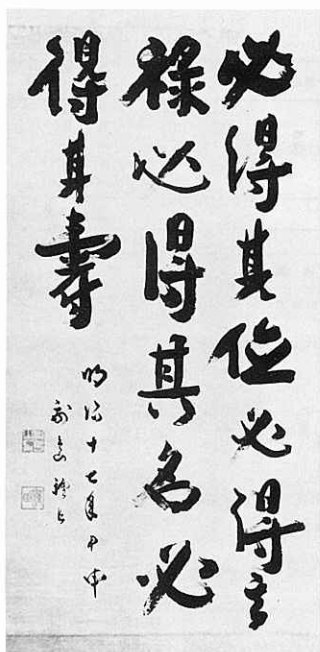 必得其位必得其
祿必得其名必
得其壽
明治十七年甲申